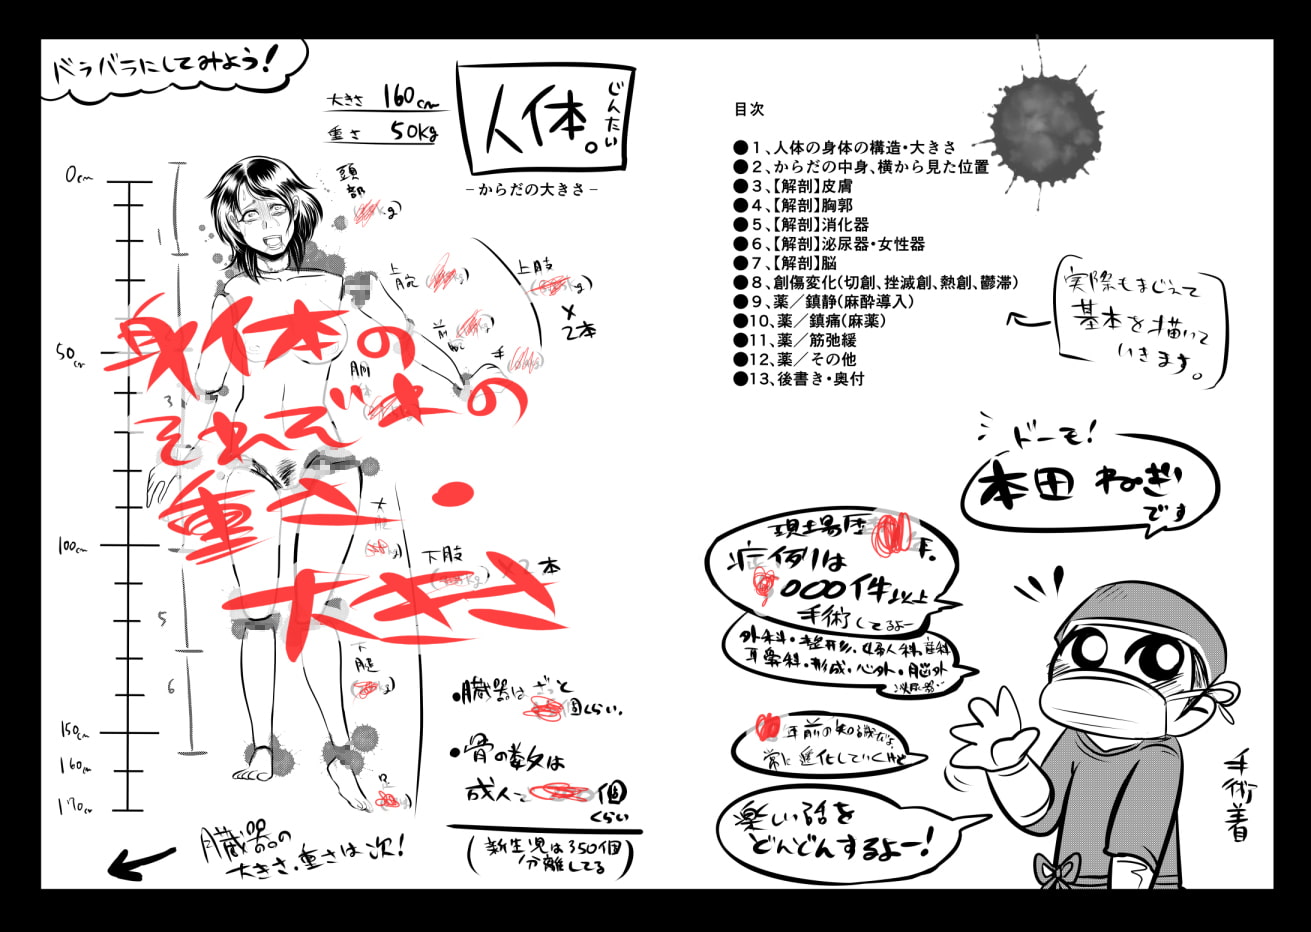 バラバラにしてみよう!
大きさ 160cm
重さ 50Kg
人体。
じんたい
−からだの大きさ−
0cm
50cm
100cm
150cm
160cm
170cm
1
3
5
6
頭部
上腕
上肢
×2本
前
手
下肢
×2本
下腿
足
身体の
それぞれの
重さ・
大きさ
●臓器はざっと
個くらい。
●骨の数は
成人で 個
くらい
(新生児は350個
分離してる)
臓器の
大きさ・重さは次!
目次
●1、人体の身体の構造・大きさ
●2、からだの中身、横から見た位置
●3、【解剖】皮膚
●4、【解剖】胸郭
●5、【解剖】消化器
●6、【解剖】泌尿器・女性器
●7、【解剖】脳
●8、創傷変化(切創、挫滅創、熱創、鬱滞)
●9、薬／鎮静(麻酔導入)
●10、薬／鎮痛(麻薬)
●11、薬／筋弛緩
●12、薬／その他
●13、後書き・奥付
実際もまじえて
基本を描いて
いきます。
ドーモ!
本田ねぎ
です
現場歴 年。
症例は
000件以上
手術してるよー
外科・整形・婦人科、産科
耳鼻科・形成・心外・脳外
泌尿器…
年前の知識だよ
常に進化していくけど
楽しい話を
どんどんするよー!
手術着